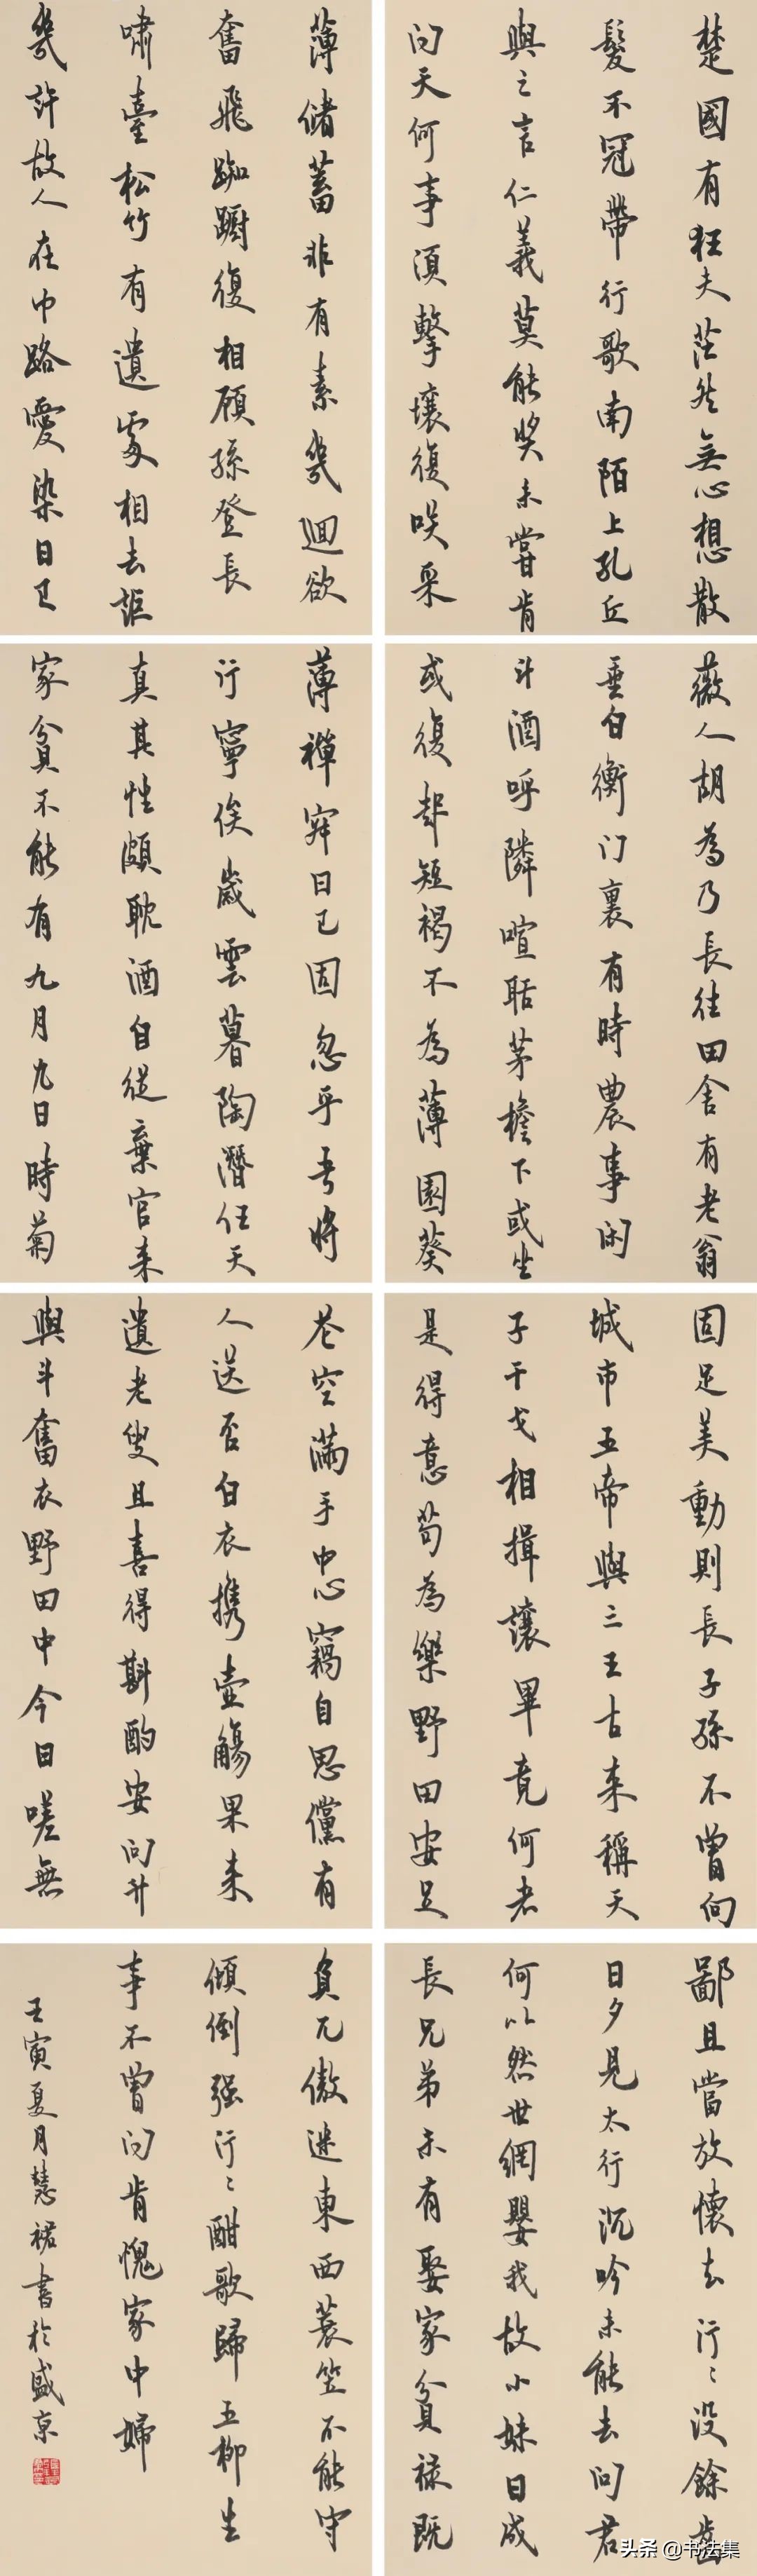 楚國有狂夫茫然無心想散
髮不冠帶行歌南陌上孔丘
與之言仁義莫能奬未嘗肯
問天何事須擊壤復咲采
薇人胡為乃長往田舍有老翁
垂白衡门裏有時農事闲
斗酒呼隣喧聒茅檐下或坐
或復起短褐不為薄園葵
固足美動則長子孫不曾向
城市五帝與三王古来稱天
子干戈相揖讓畢竟何者
是得意苟為樂野田安足
鄙且當放懷去行〻沒餘齒
日夕見太行沉吟未能去问君
何以然世網嬰我故小妹日成
長兄弟未有娶家貧禄既
薄儲蓄非有素幾迴欲
奮飛踟躕復相顧孫登長
嘯臺松竹有遺處相去詎
幾許故人在中路愛染日已
薄禪寂日已固忽乎吾將
行寧俟歲雲暮陶潛任天
真其性頗耽酒自從棄官来
家貧不能有九月九日時菊
花空滿手中心竊自思儻有
人送否白衣携壺觴果来
遺老叟且喜得斟酌安问升
與斗奮衣野田中今日嗟無
負兀傲迷東西蓑笠不能守
傾倒强行〻酣歌歸五柳生
事不曾问肯愧家中婦
壬寅夏月慧裙書於盛京
头条 @书法集